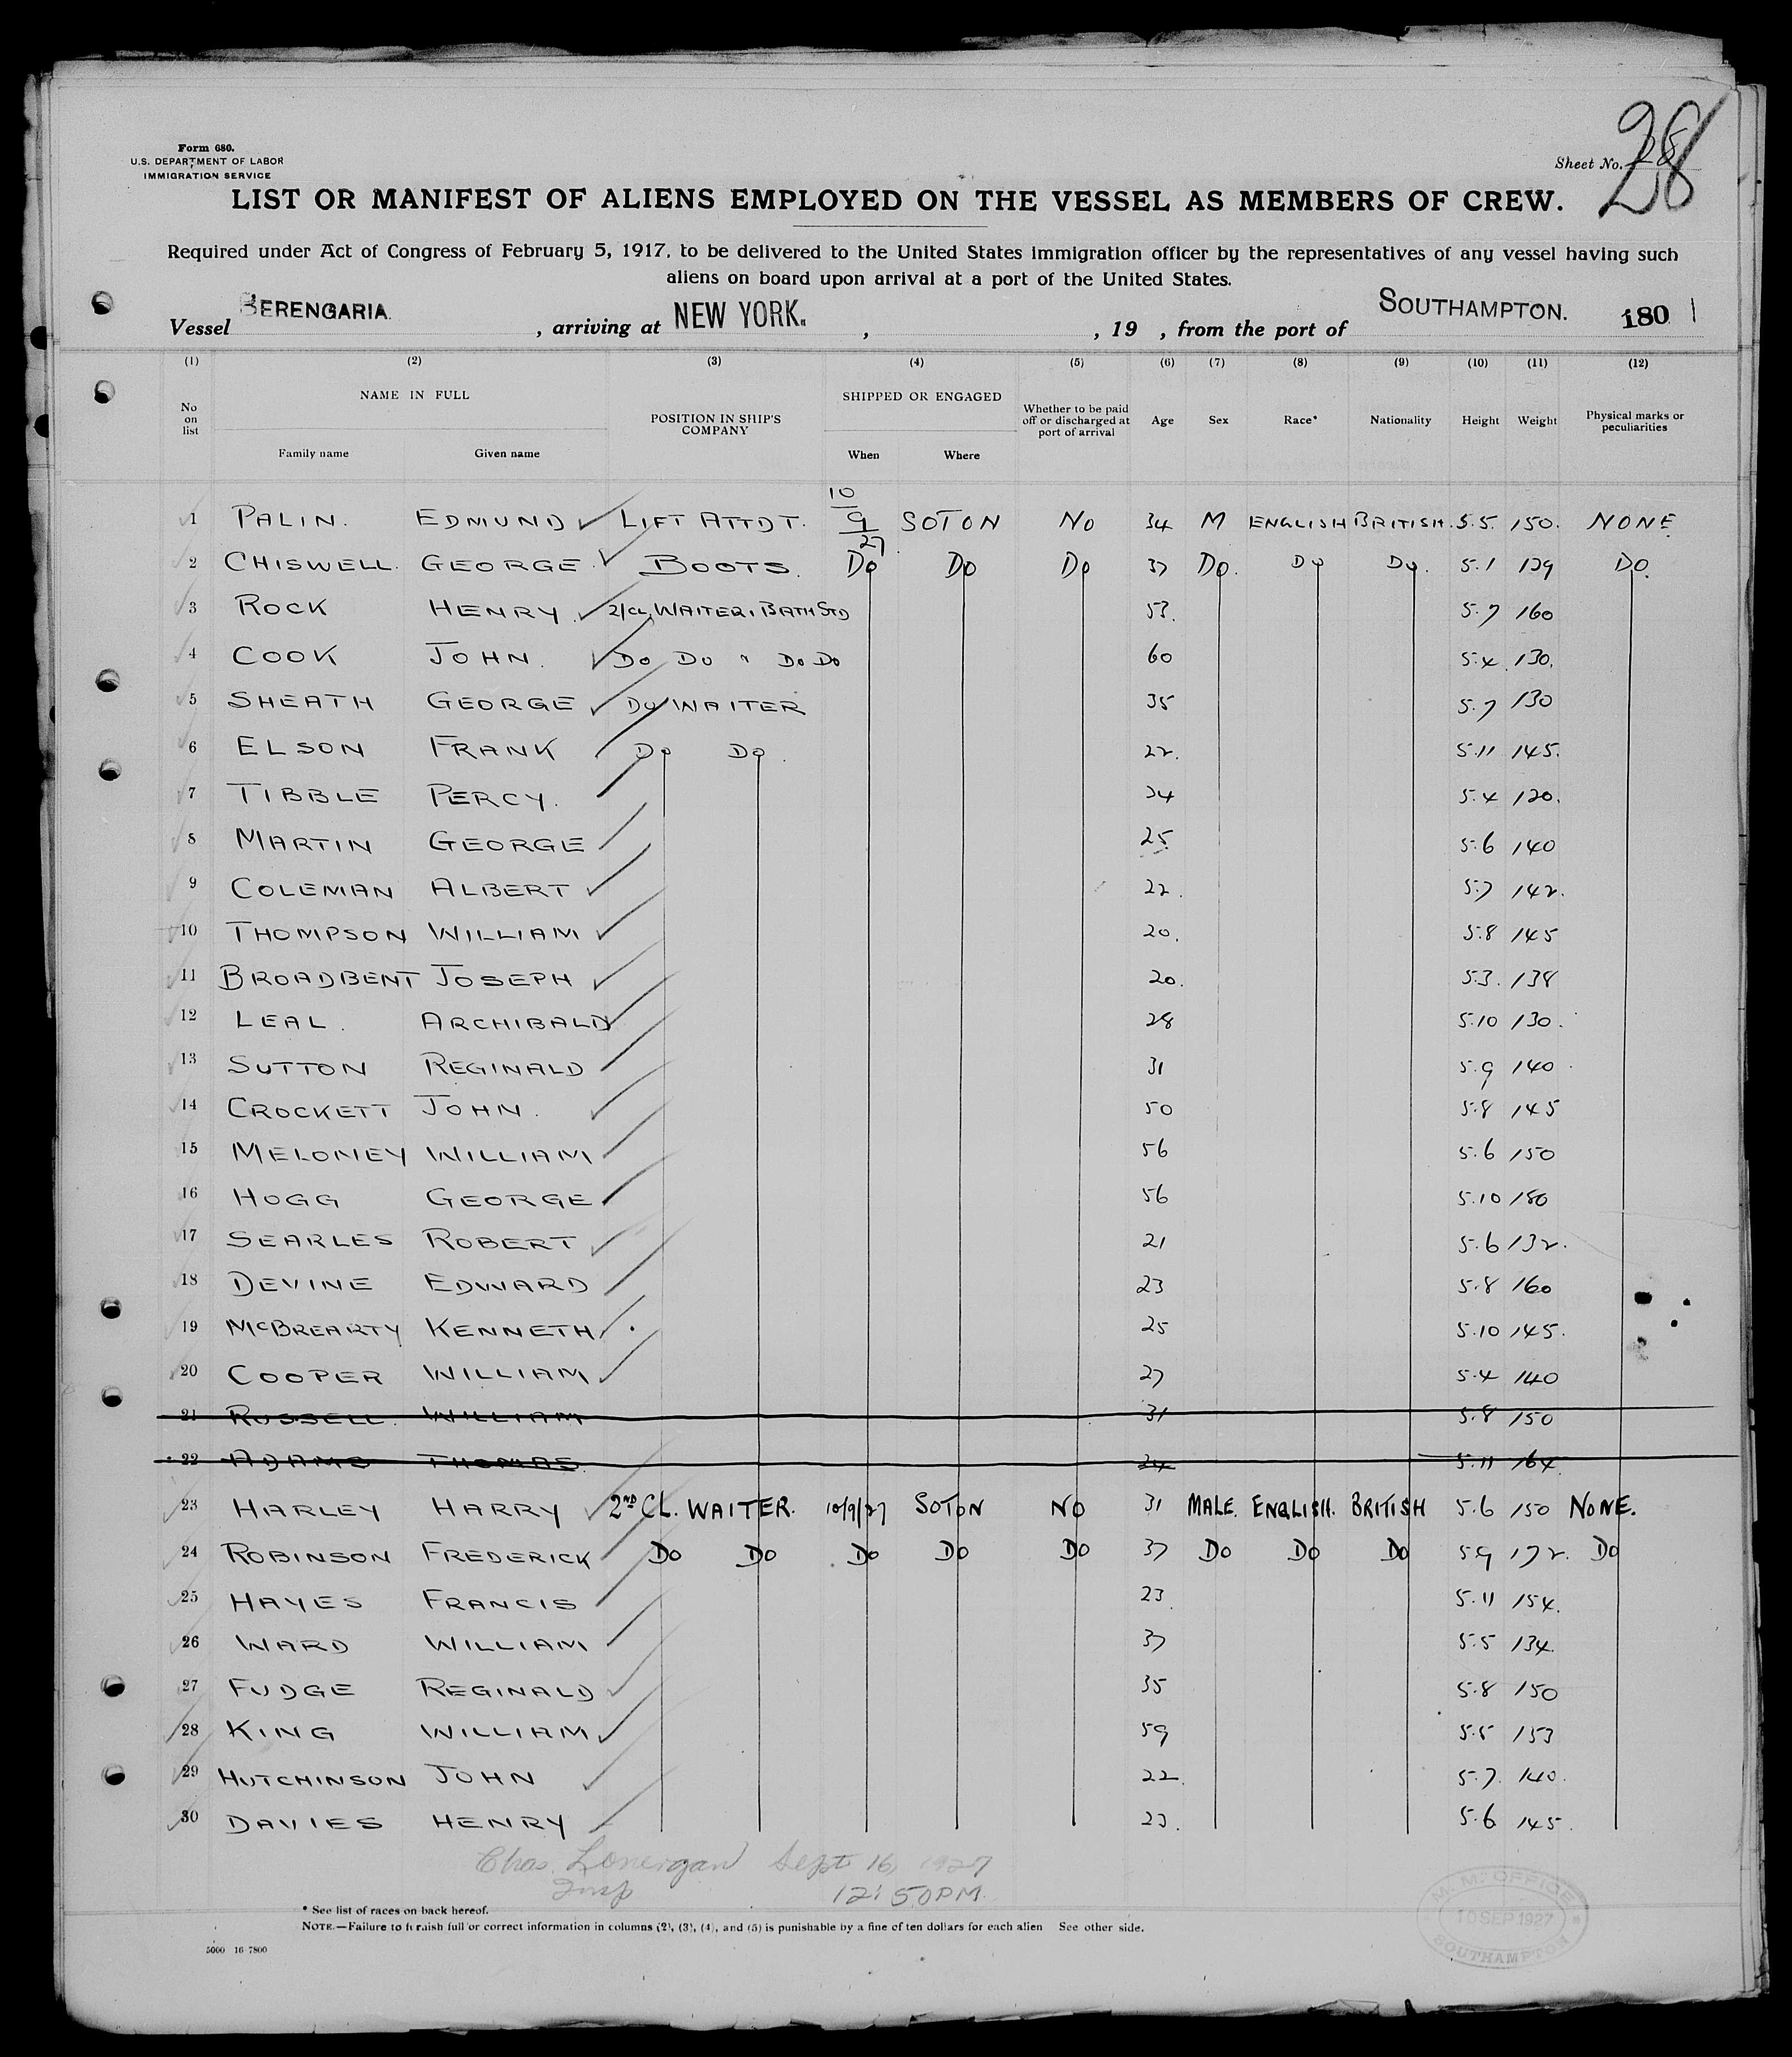 Form 680.
U.S. DEPARTMENT OF LABOR
IMMIGRATION SERVICE
Sheet No. 28
28
LIST OR MANIFEST OF ALIENS EMPLOYED ON THE VESSEL AS MEMBERS OF CREW.
Required under Act of Congress of February 5, 1917, to be delivered to the United States immigration officer by the representatives of any vessel having such
aliens on board upon arrival at a port of the United States.
Vessel BERENGARIA. , arriving at NEW YORK. , , 19 , from the port of SOUTHAMPTON. 180 1
(1) (2) (3) (4) (5) (6) (7) (8) (9) (10) (11) (12)
No on list NAME IN FULL Family name Given name POSITION IN SHIP'S COMPANY SHIPPED OR ENGAGED When Where Whether to be paid off or discharged at port of arrival Age Sex Race* Nationality Height Weight Physical marks or peculiarities
1 PALIN. EDMUND LIFT ATTDT. 10/9/27 SOTON NO 34 M ENGLISH BRITISH. 5.5. 150. NONE
2 CHISWELL. GEORGE BOOTS. DO DO DO 37 DO. DO DO. 5.1 129 DO.
3 ROCK HENRY 2/CL, WAITER, BATH STD 53. 5.7 160
4 COOK JOHN. DO DO " DO DO 60 5.4 130.
5 SHEATH GEORGE DO WAITER 35 5.7 130
6 ELSON FRANK DO DO. 22. 5.11 145.
7 TIBBLE PERCY. 34 5.4 120.
8 MARTIN GEORGE 25 5.6 140
9 COLEMAN ALBERT 22. 5.7 142.
10 THOMPSON WILLIAM 20. 5.8 145
11 BROADBENT JOSEPH 20. 5.3. 138
12 LEAL. ARCHIBALD 28 5.10 130.
13 SUTTON REGINALD 31 5.9 140
14 CROCKETT JOHN. 50 5.8 145
15 MELONEY WILLIAM 56 5.6 150
16 HOGG GEORGE 56 5.10 180
17 SEARLES ROBERT 21 5.6 132.
18 DEVINE EDWARD 23 5.8 160
19 McBREARTY KENNETH 25 5.10 145.
20 COOPER WILLIAM 27 5.4 140
21 RUSSELL. WILLIAM 31 5.8 150
22 ADAMS THOMAS. 24 5.11 164.
23 HARLEY HARRY 2ND CL. WAITER. 10/9/27 SOTON NO 31 MALE. ENGLISH. BRITISH 5.6 150 NONE.
24 ROBINSON FREDERICK DO DO DO DO DO 37 DO DO DO 5.9 172. DO
25 HAYES FRANCIS 23. 5.11 154.
26 WARD WILLIAM 37 5.5 134.
27 FUDGE REGINALD 35 5.8 150
28 KING WILLIAM 59 5.5 153
29 HUTCHINSON JOHN 22. 5.7. 140.
30 DAVIES HENRY 23. 5.6 145.
Chas. Lonergan Sept 16, 1927
Insp 12:50 PM.
* See list of races on back hereof.
NOTE.—Failure to furnish full or correct information in columns (2), (3), (4), and (5) is punishable by a fine of ten dollars for each alien See other side.
5000 16 7800
M. M. OFFICE
10 SEP 1927
SOUTHAMPTON